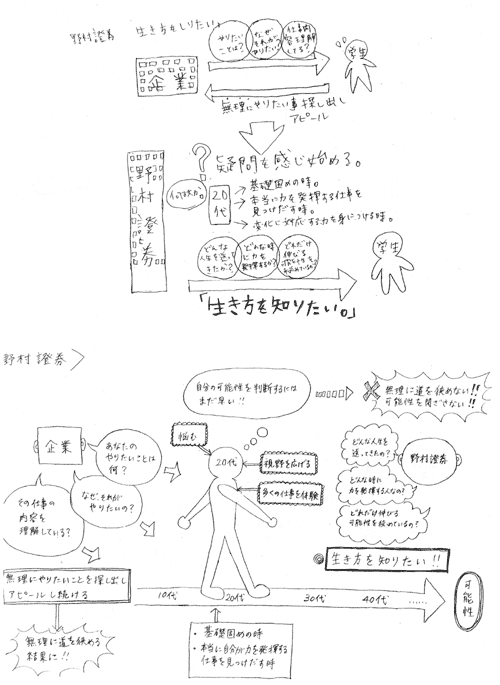 野村證券　生き方をしりたい。
やりたい
ことは？
なぜ
それが
やりたい？
仕事内
容を理解
してる？
企業
学生
無理にやりたい事探し出し
アピール
？疑問を感じ始める。
野村證券
20代
→基礎固めの時。
→本当に力を発揮する仕事を
見つけだす時。
→変化に対応する力を身につける時。
どんな
人生を送って
きたか？
どんな時
に力を
発揮するか？
どれだけ
伸びる
学生
「生き方を知りたい。」
野村證券＞
自分の可能性を判断するには
まだ早い!!
無理に道を狭めない!!
可能性を閉ざさない!!
企業
あなたの
やりたいことは
何？
なぜ、それが
やりたいの？
その仕事の
内容を
理解している？
悩む
20代
視野を広げる
多くの仕事を体験
どんな人生を
送ってきたの？
野村證券
どんな時に
力を発揮する人なの？
どれだけ伸びる
可能性を秘めているの？
生き方を知りたい!!
無理にやりたいことを探し出し
アピールし続ける
10代
20代
30代
40代
……
可能性
無理に道を狭める
結果に!!
・基礎固めの時
・本当に自分が力を発揮する
仕事を見つけだす時